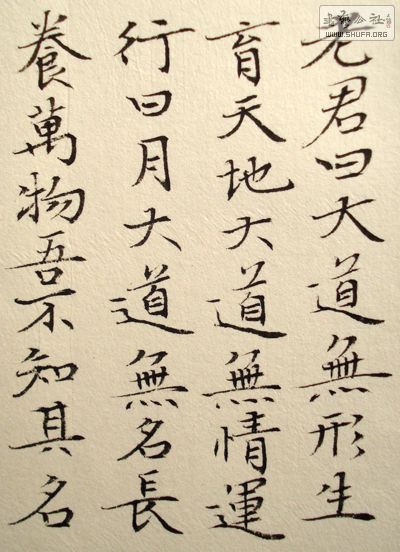 老君曰大道無形生
育天地大道無情運
行日月大道無名長
養萬物吾不知其名
WWW.SHUFA.ORG